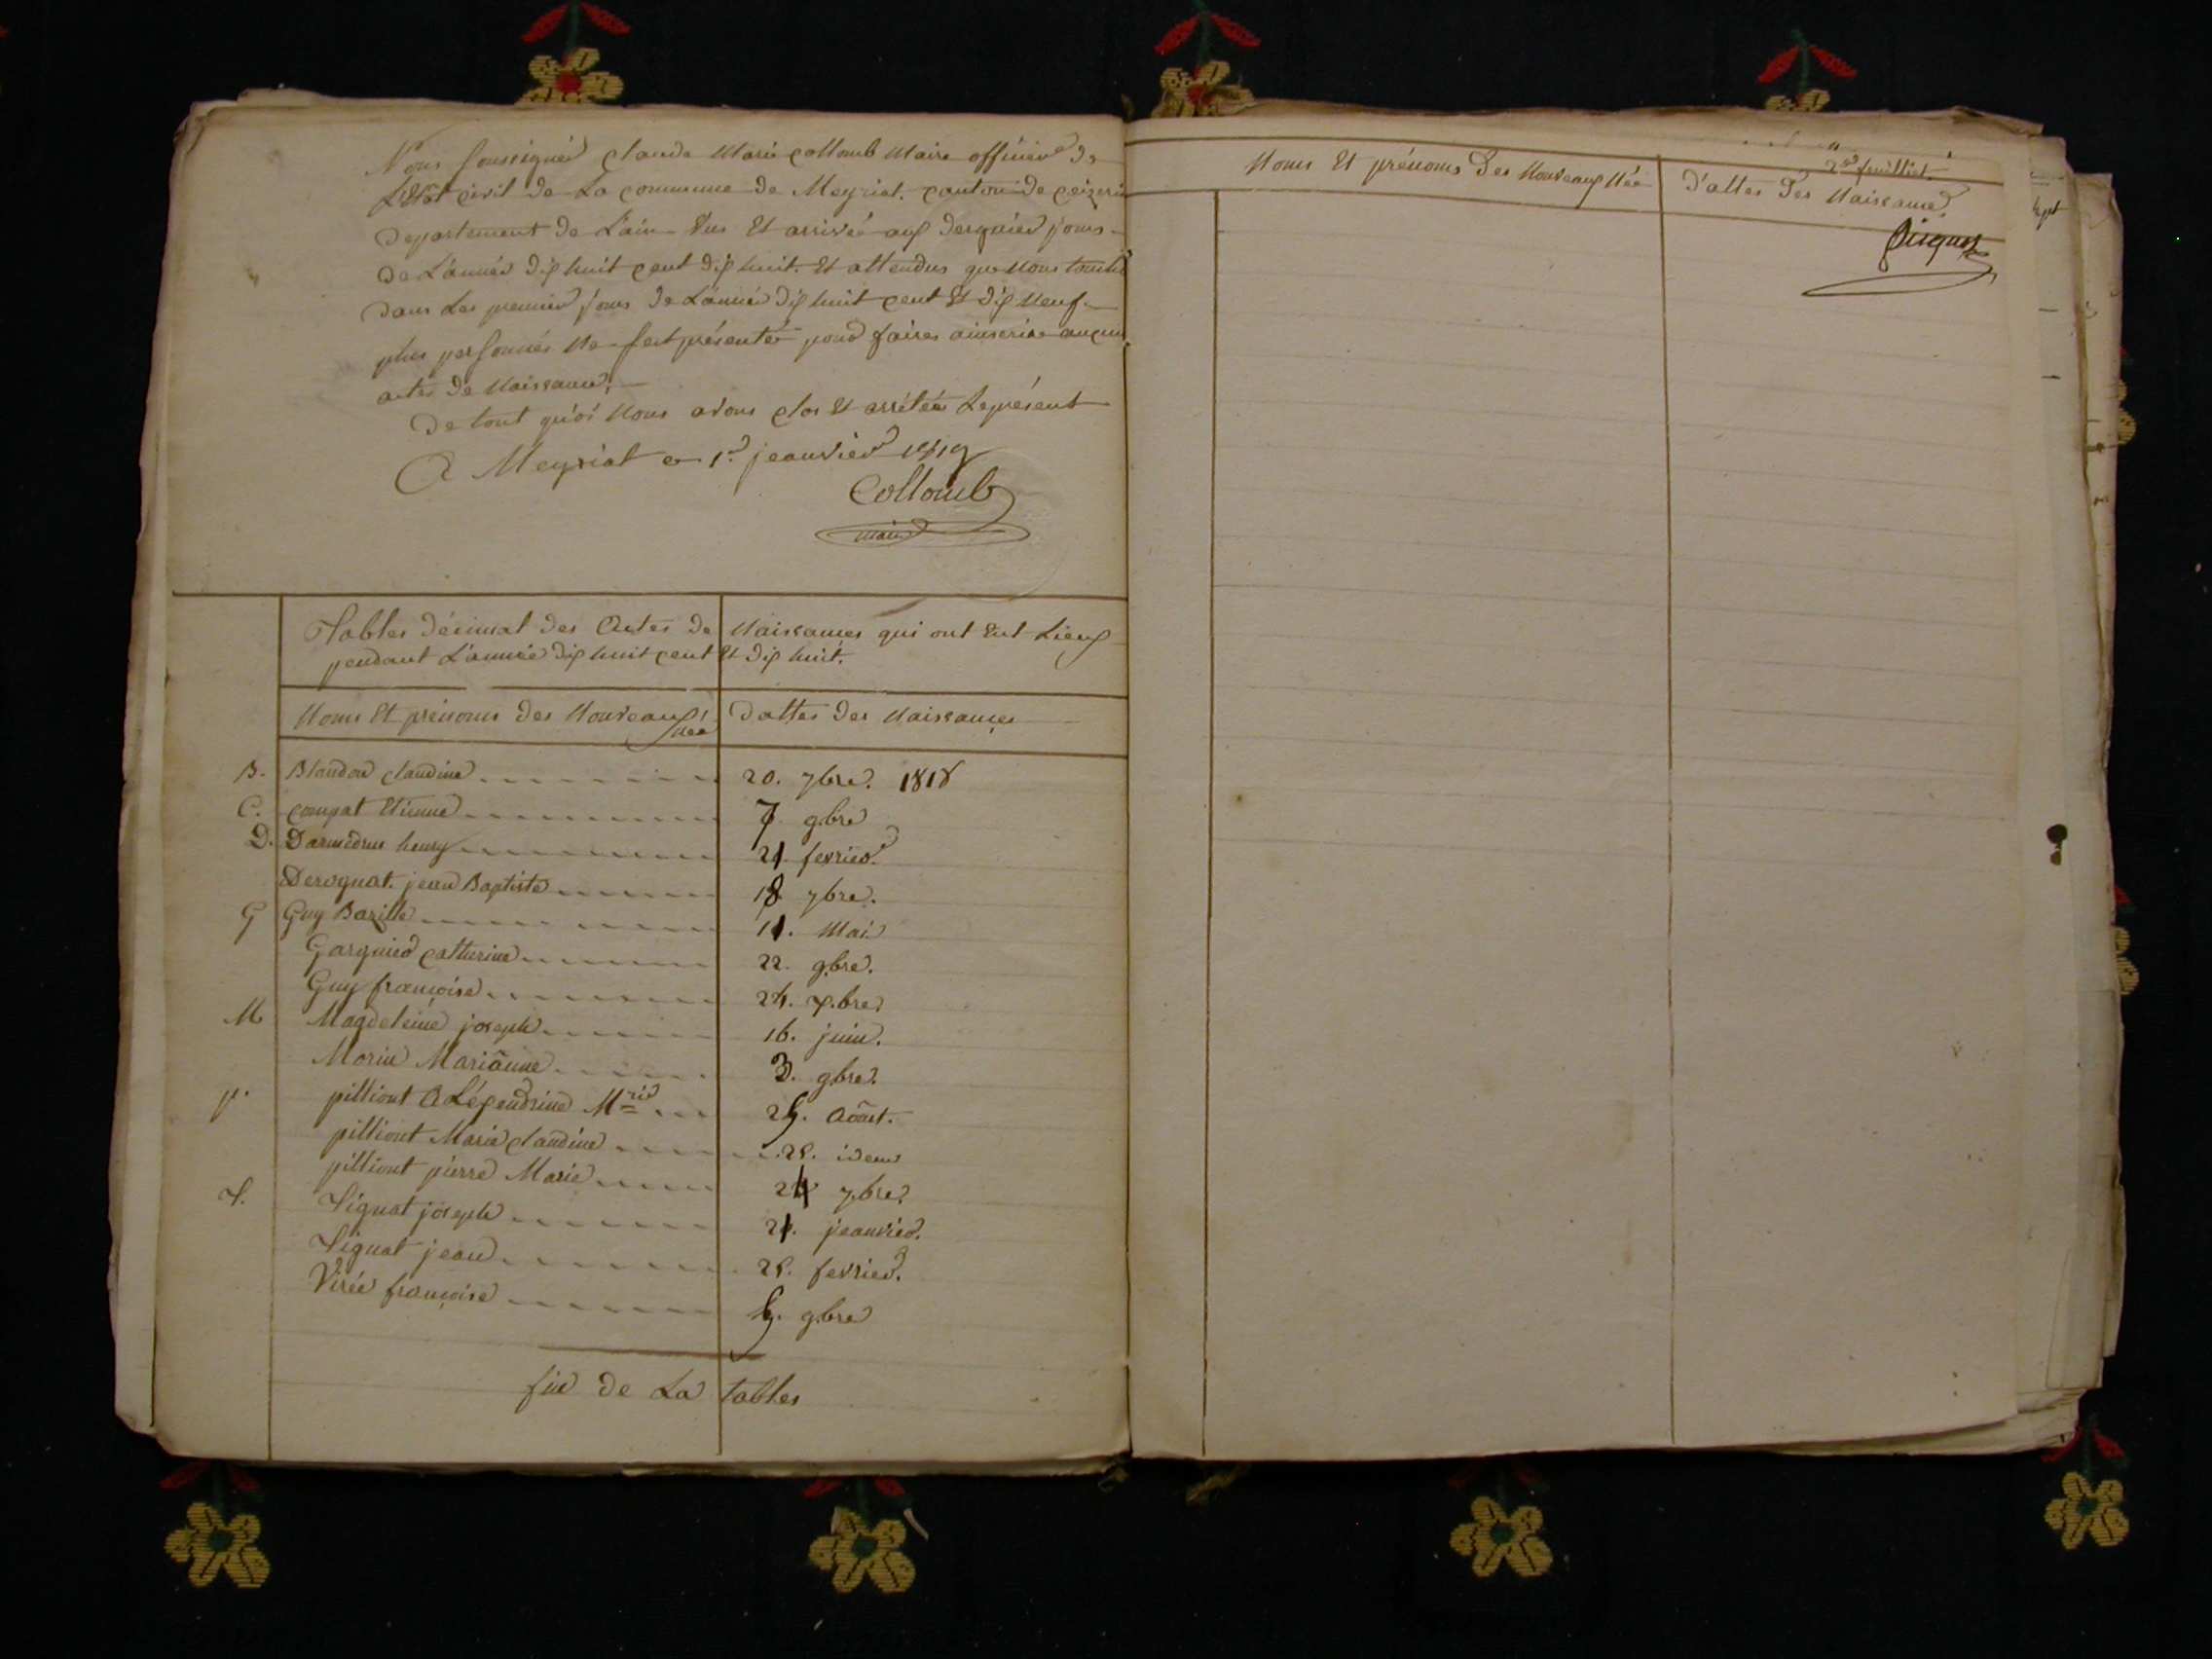 Nous soussigné Claude Marie Collomb Maire officier de
L'Etat civil de La commune de Meyriat. canton de ceizeria
Departement de L'ain Vus Et arrivé aux dernier jours
de L'année dix huit cent dix huit. Et attendus que Nous
dans Les premier jours de L'année dix huit cent Et dix Neuf
plus personnes Ne présenté pour faires ainscrire aucun
actes de Naissance,
De tout quoi Nous avons clos Et arrêtée Le présent
A Meyriat Le 1er jeanvier 1819
Collomb
maire
Tables décimal des Actes de Naissances qui ont Eut Lieux
pendant L'année dix huit cent Et dix huit.
Noms Et prénoms des Nouveaux Née Dattes des Naissances
B. Blondon claudine 20. 7bre. 1818
C. compat Etienne 7. 9bre
D. Darmedrus henry 21. fevrier.
Derognat. jean Baptiste 18 7bre.
G Guy Bazille 11. Mai
Gargnier catterine 22. 9bre.
Guy françoise 24. 7.bre
M Magdeleine joseph 16. juin.
Morin Marianne 3. 9bre.
p. pilliont Alexendrine Mrie 25. Août.
pilliont Marie claudine 25. idem
pilliont pierre Marie 24 7.bre.
T. Tignat joseph 21. jeanvier.
Tignat jean 25. fevrier.
Virée françoise 5. 9bre
fin de La tables
2nd feuillet.
Noms Et prénoms Des Nouveaux Née D'attes Des Naissance.